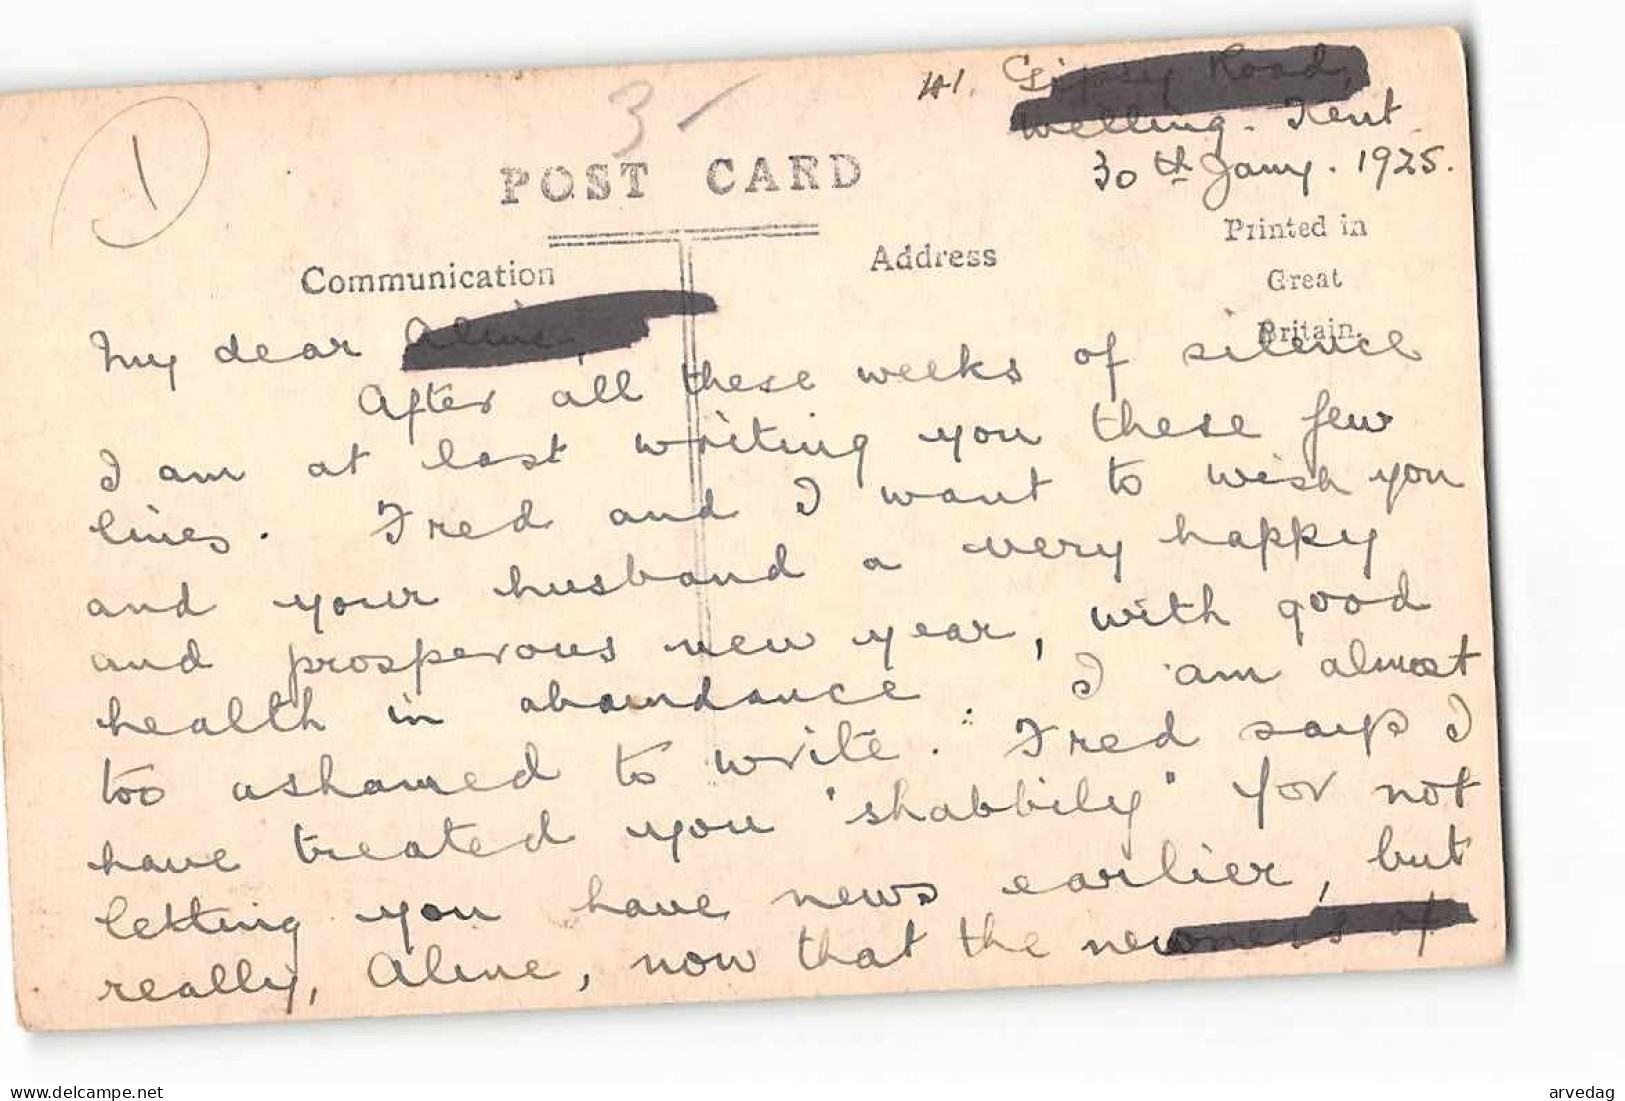 3-
41. Gipsy Road,
Welling. Kent
30th Jany. 1925.
1
POST CARD
Printed in
Great
Britain.
Communication
Address
My dear Aline,
After all these weeks of silence
I am at last writing you these few
lines. Fred and I want to wish you
and your husband a very happy
and prosperous new year, with good
health in abundance. I am almost
too ashamed to write. Fred says I
have treated you "shabbily" for not
letting you have news earlier, but
really, Aline, now that the newness of
delcampe.net
arvedag